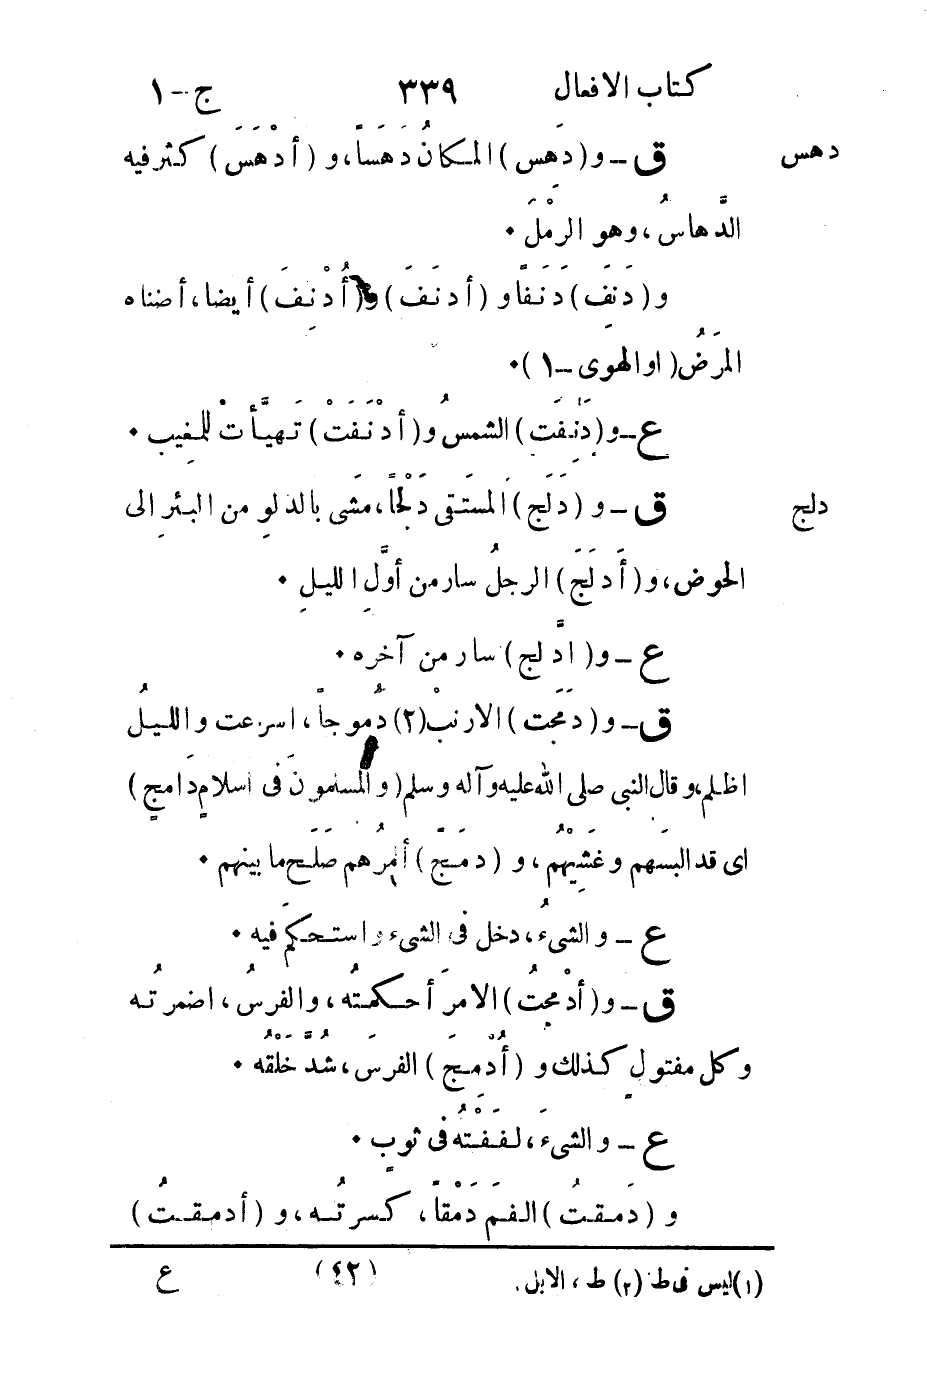 كتاب الافعال ٣٣٩ ج-١
دهس ق - و (دَهِس) المكانُ دهَسَاً، و (أدْهَسَ) كثر فيه
الدَّهاسُ، وهو الرمْلَ.
و (دَنِفَ) دَنَفَاً و (أدنَفَ) و (أُدْنِفَ) أيضا، أضناه
المرَضُ (او الهوى -١).
ع - و (دَنِفَت) الشمسُ و (أدْنَفَتْ) تهيَّأتْ للمغيبِ.
دلج ق - و (دَلَج) المستَقى دَلْجاً، مَشى بالدلوِ من البئرِ الى
الحوض، و (أَدلَجَ) الرجلُ سار من أوَّلِ الليلِ.
ع - و (ادَّلج) سار من آخرِه.
ق - و (دمَجَت) الارنبْ (٢) دُموجاً، اسرعت والليلُ
اظلم، وقال النبى صلى الله عليه وآله وسلم (والمسلمونَ فى اسلامٍ دَامجٍ)
اى قد البسَهم وغَشِيْهُم، و (دمَجَ) أمرُهم صَلَحَ ما بينهم.
ع - والشىءُ، دخل فى الشىءِ واستحكَم فيه.
ق - و (أدْمجتُ) الامرَ أحكمتُه، والفرسُ، اضمرتُه
وكل مفتولٍ كذلك و (أُدْمِجَ) الفرسَ، شُدَّ خَلْقُه.
ع - والشىءَ، لففْتُه فى ثوبٍ.
و (دمَقتُ) الفمَ دَمْقاً، كسرتُه، و (أدمقتُ)
(١) ليس فى ط (٢) ط، الابل.
(٤٢) ع